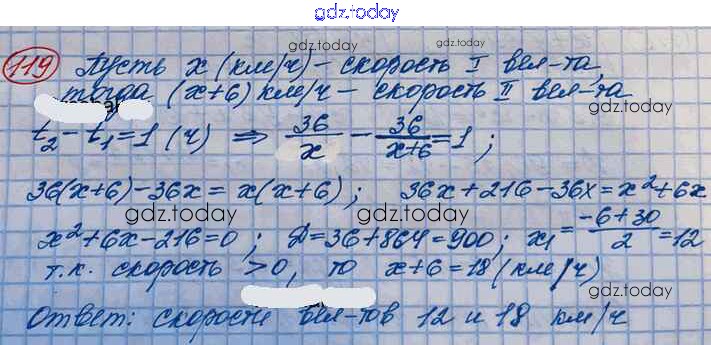 gdz.today
119 Пусть x (км/ч) – скорость I вел-та,
gdz.today gdz.today
тогда (x+6) км/ч – скорость II вел-та
t₂ – t₁ = 1 (ч) ⇒ 36/x – 36/(x+6) = 1 ;
36(x+6) – 36x = x(x+6) ; 36x + 216 – 36x = x² + 6x
gdz.today gdz.today
x² + 6x – 216 = 0 ; D = 36 + 864 = 900 ; x₁ = (–6+30)/2 = 12
т.к. скорость > 0, то x+6 = 18 (км/ч)
gdz.today
Ответ: скорости вел-тов 12 и 18 км/ч